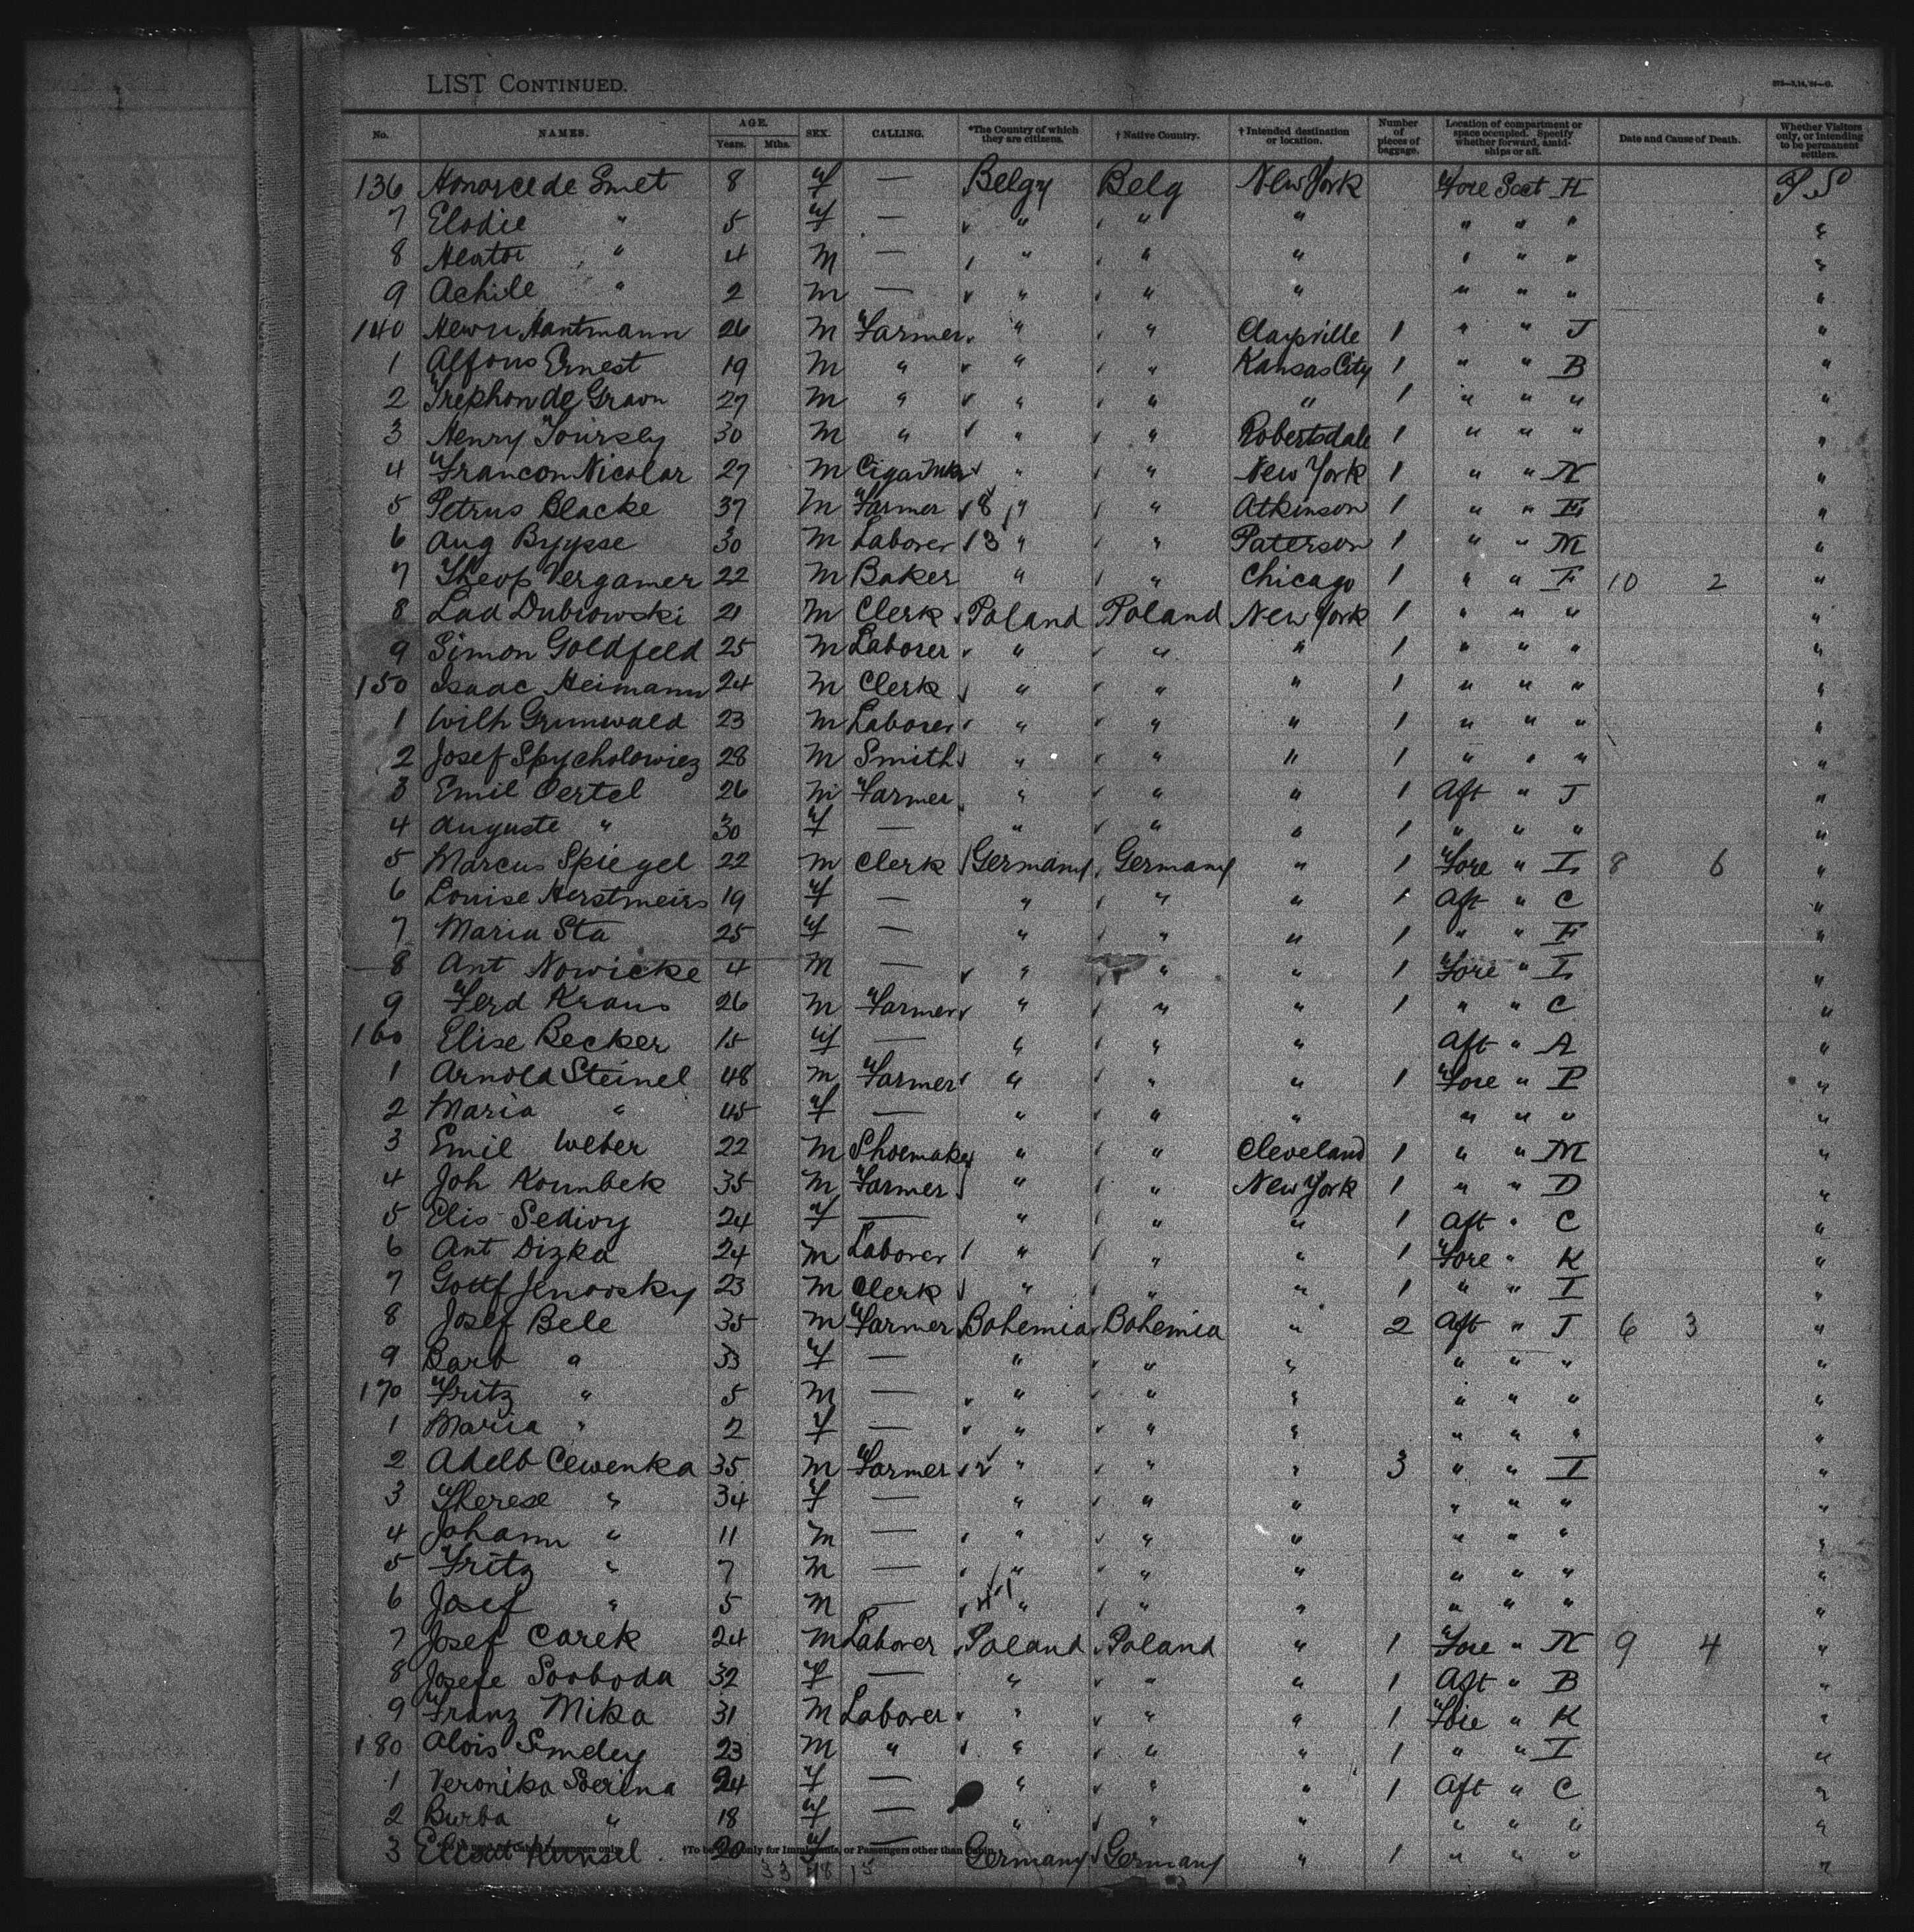 LIST CONTINUED.
No. NAMES. AGE. Years. Mths. SEX. CALLING. *The Country of which they are citizens. † Native Country. † Intended destination or location. Number of pieces of baggage. Location of compartment or space occupied. Specify whether forward, amidships or aft. Date and Cause of Death. Whether Visitors only, or intending to be permanent settlers.
136 Honorce de Smet 8 f — Belgy Belg New York Fore Sect H P.S
7 Elodie " 5 f — " " " " " " "
8 " 4 M — " " " " " " "
9 Achile " 2 M — " " " " " " "
140 Hantmann 26 M Farmer " " Claysville 1 " " J "
1 Alfons Ernest 19 M " " " Kansas City 1 " " B "
2 Trephon de Graon 27 M " " " " 1 " " " "
3 Henry Toursey 30 M " " " Robertsdale 1 " " " "
4 Francon Nicolar 27 M Cigar Mkr " " New York 1 " " N "
5 Petrus Blacke 37 M Farmer 8 " " Atkinson 1 " " E "
6 Aug Byysse 30 M Laborer 13 " " Paterson 1 " " M "
7 Theop Vergamer 22 M Baker " " Chicago 1 " " F 10 2 "
8 Lad Dubrowski 21 M Clerk Poland Poland New York 1 " " " "
9 Simon Goldfeld 25 M Laborer " " " 1 " " " "
150 Isaac Heimann 24 M Clerk " " " 1 " " " "
1 Wilh Grunwald 23 M Laborer " " " 1 " " " "
2 Josef Spycholowiez 28 M Smith " " " 1 " " " "
3 Emil Oertel 26 M Farmer " " " 1 Aft " J "
4 Auguste " 30 f — " " " 1 " " " "
5 Marcus Spiegel 22 M Clerk Germany Germany " 1 Fore " L 8 6 "
6 Louise Herstmeirs 19 f — " " " 1 Aft " C "
7 Maria Sta 25 f — " " " 1 " " F "
8 Ant Nowicke 4 M — " " " 1 Fore " L "
9 Ferd Kraus 26 M Farmer " " " 1 " " C "
160 Elise Becker 15 f — " " " Aft " A "
1 Arnold Steinel 48 M Farmer " " " 1 Fore " P "
2 Maria " 45 f — " " " " " " "
3 Emil Weber 22 M Shoemaker " " Cleveland 1 " " M "
4 Joh Kounbek 35 M Farmer " " New York 1 " " D "
5 Elis Sedivy 24 f — " " " 1 Aft " C "
6 Ant Dizka 24 M Laborer " " " 1 Fore " K "
7 Gottf Jenovsky 23 M Clerk " " " 1 " " I "
8 Josef Bele 35 M Farmer Bohemia Bohemia " 2 Aft " J 6 3 "
9 Barb " 33 f — " " " " " " "
170 Fritz " 5 M — " " " " " " "
1 Maria " 2 f — " " " " " " "
2 Adelb Cewenka 35 M Farmer 2 " " " 3 " " I "
3 Therese " 34 f — " " " " " " "
4 Johann " 11 M — " " " " " " "
5 Fritz " 7 M — " " " " " " "
6 Josef " 5 M — " " " " " " "
7 Josef Carek 24 M Laborer Poland Poland " 1 Fore " N 9 4 "
8 Josefe Sooboda 32 f — " " " 1 Aft " B "
9 Franz Mika 31 M Laborer " " " 1 Fore " K "
180 Alois Smdey 23 M " " " " 1 " " I "
1 Veronika Soerina 24 f — " " " 1 Aft " C "
2 Burba " 18 f — " " " " " " "
3 Kunsel 20 f — Germany Germany " 1 " " " "
33 48 15